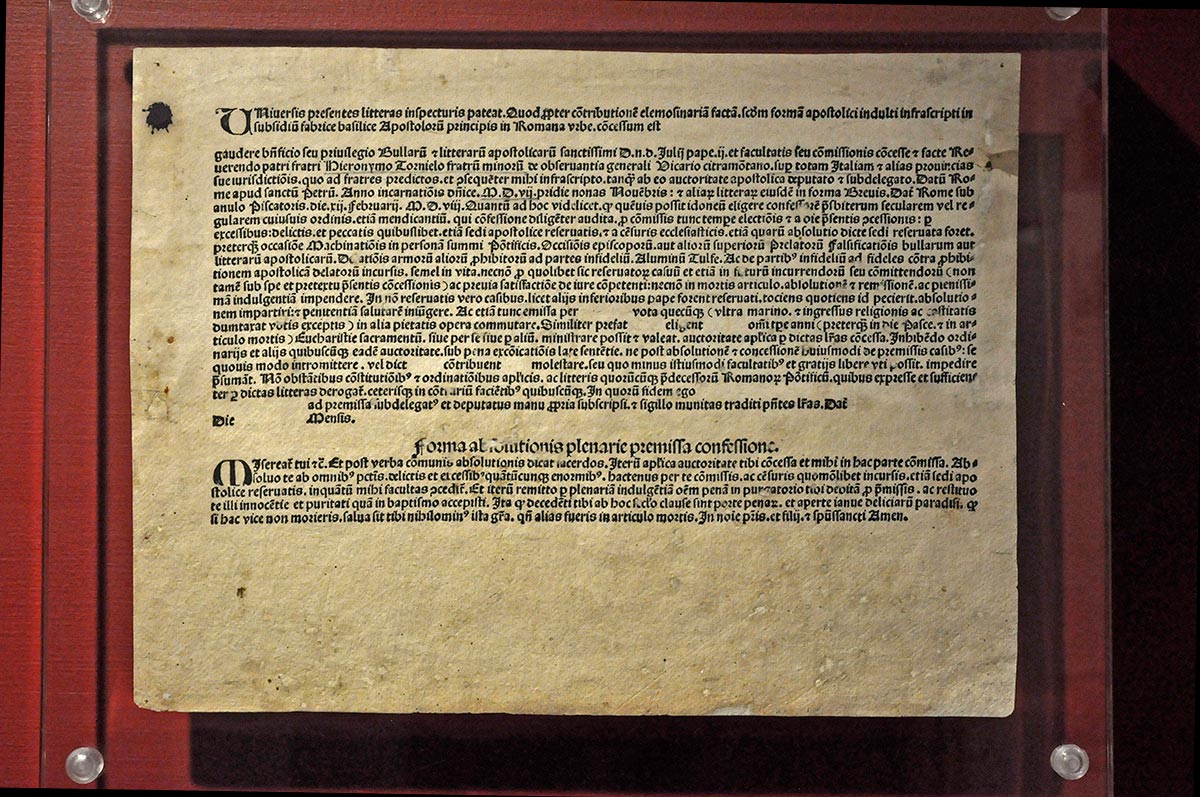 UNiversis presentes litteras inspecturis pateat. Quod ꝓpter cõtributionẽ elemosinariã factã. scd̃m formã apostolici indulti infrascripti in
subsidiũ fabrice basilice Apostolorũ principis in Romana vrbe. cõcessum est
gaudere bñficio seu priuilegio Bullarũ ⁊ litterarũ apostolicarũ sanctissimi D.n.d. Julij pape.ij. et facultatis seu cõmissionis cõcesse ⁊ facte Re-
uerendo patri fratri Hieronymo Tornielo fratrũ minorũ de obseruantia generali Vicario citramõtano. suꝑ totam Italiam ⁊ alias prouincias
sue iurisdictiõis. quo ad fratres predictos. et ꝯsequẽter mihi infrascripto. tanqȝ ab eo auctoritate apostolica deputato ⁊ subdelegato. Datũ Ro-
me apud sanctũ Petrũ. Anno incarnatiõis dñice. M.D.vij. pridie nonas Nouẽbris: ⁊ aliaꝝ litteraꝝ eiusdẽ in forma Breuis. Dat̃ Rome sub
anulo Piscatoris. die. xij. Februarij. M.D.viij. Quantũ ad hoc videlicet. ꝙ queuis possit idoneũ eligere confessorẽ p̃sbiterum secularem vel re-
gularem cuiusuis ordinis. etiã mendicantiũ. qui cõfessione diligẽter audita. ꝓ cõmissis tunc tempe electiõis ⁊ a oĩe p̃sentis ꝯcessionis: ꝑ
excessibus: delictis. et peccatis quibuslibet. etiã sedi apostolice reseruatis. ⁊ a cẽsuris ecclesiasticis. etiã quarũ absolutio dicte sedi reseruata foret.
preterqȝ occasiõe Machinatiõis in personã summi Põtificis. Occisiõis episcoporũ. aut aliorũ superiorũ Prelatorũ Falsificatiõis bullarum aut
litterarũ apostolicarũ. atiõis armorũ aliorũ ꝓhibitorũ ad partes infideliũ. Aluminũ Tulfe. Ac de partibꝰ infideliũ ad fideles cõtra ꝓhibi-
tionem apostolicã delatorũ incursis. semel in vita. necnõ ꝓ quolibet sic reseruatoꝝ casuũ et etiã in futurũ incurrendorũ seu cõmittendorũ (non
tamẽ sub spe et pretextu p̃sentis cõcessionis) ac preuia satisfactiõe de iure cõpetenti: necnõ in mortis articulo. absolutionẽ ⁊ remissionẽ. ac plenissi-
mã indulgentiã impendere. In nõ reseruatis vero casibus. licet alijs inferioribus pape forent reseruati. tociens quotiens id pecierit. absolutio-
nem impartiri: ⁊ penitentiã salutarẽ iniũgere. Ac etiã tunc emissa per vota quecũqȝ (vltra marino. ⁊ ingressus religionis ac castitatis
dumtarat votis exceptis) in alia pietatis opera commutare. Similiter prefat eligent om̃i tꝑe anni (preterqȝ in die Pasce. ⁊ in ar-
ticulo mortis) Eucharistie sacramentũ. siue per se siue ꝑ aliũ. ministrare possit ⁊ valeat. auctoritate ap̃lica ꝑ dictas lr̃as cõcessa. Inhibẽdo ordi-
narijs et alijs quibuscũqȝ eadẽ auctoritate. sub pena excõicatiõis late sentẽtie. ne post absolutionẽ ⁊ concessionẽ huiusmodi de premissis casibꝰ: se
quouis modo intromittere. vel dict cõtribuent molestare. seu quo minus istiusmodi facultatibꝰ et gratijs libere vti possit. impedire
p̃sumãt. Nõ obstãtibus cõstitutiõibꝰ ⁊ ordinatiõibus ap̃licis. ac litteris quorũcũqȝ p̃decessorũ Romanoꝝ Põtificũ. quibus expresse et sufficien-
ter ꝑ dictas litteras derogat̃. ceterisqȝ in cõtrariũ faciẽtibꝰ quibuscũqȝ. In quorũ fidem ego
ad premissa subdelegatꝰ et deputatus manu ꝓpria subscripsi. ⁊ sigillo munitas traditi pñtes lr̃as. Dat̃
Die Mensis.
Forma absolutionis plenarie premissa confessione.
MIsereat̃ tui ⁊c̃. Et post verba cõmunis absolutionis dicat sacerdos. Iterũ ap̃lica auctoritate tibi cõcessa et mihi in hac parte cõmissa. Ab-
soluo te ab omnibꝰ pctĩs. delictis et excessibꝰ quãtũcunqȝ enormibꝰ. hactenus per te cõmissis. ac cẽsuris quomõlibet incursis. etiã sedi apo
stolice reseruatis. inquãtũ mihi facultas ꝯcedit̃. Et iterũ remitto ꝑ plenariã indulgẽtiã oẽm penã in purgatorio tibi debitã ꝓ p̃missis. ac restituo
te illi innocẽtie et puritati quã in baptismo accepisti. Ita ꝙ decedẽti tibi ab hoc seclo clause sint porte penaꝝ. et aperte ianue deliciarũ paradisi. ꝙ
si hac vice non morieris. salua sit tibi nihilominꝰ ista gr̃a. qñ alias fueris in articulo mortis. In noĩe pr̃is. et filij. ⁊ sp̃ussancti Amen.